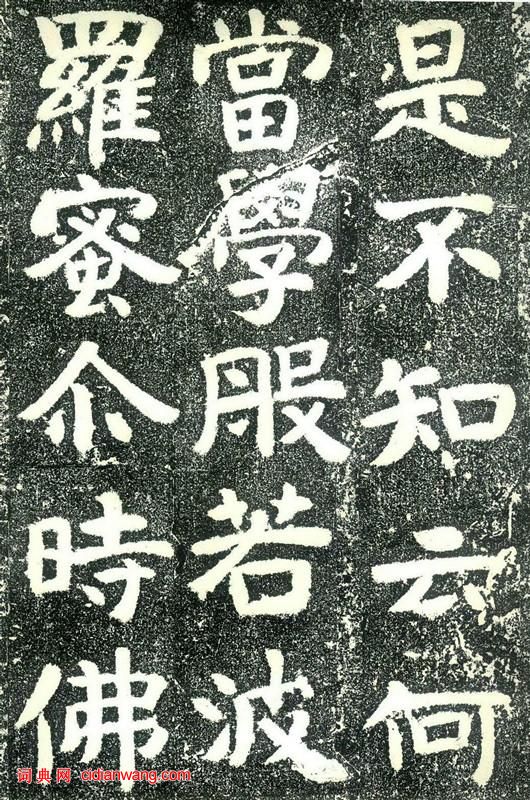 是不知云何
當學服若波
羅蜜尒時佛
词典网 cidianwang.com